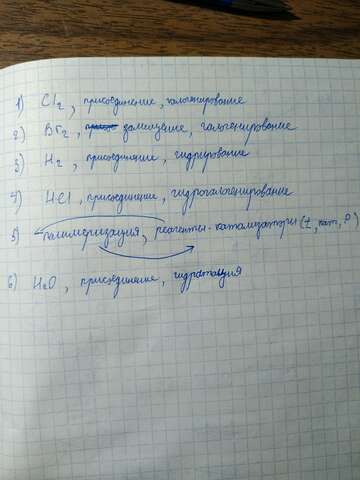 1) Cl2, присоединение, галогенирование
2) Br2, замещение, галогенирование
3) H2, присоединение, гидрирование
4) HCl, присоединение, гидрогалогенирование
5) полимеризация, реагенты-катализаторы (t, кат, P)
6) H2O, присоединение, гидратация